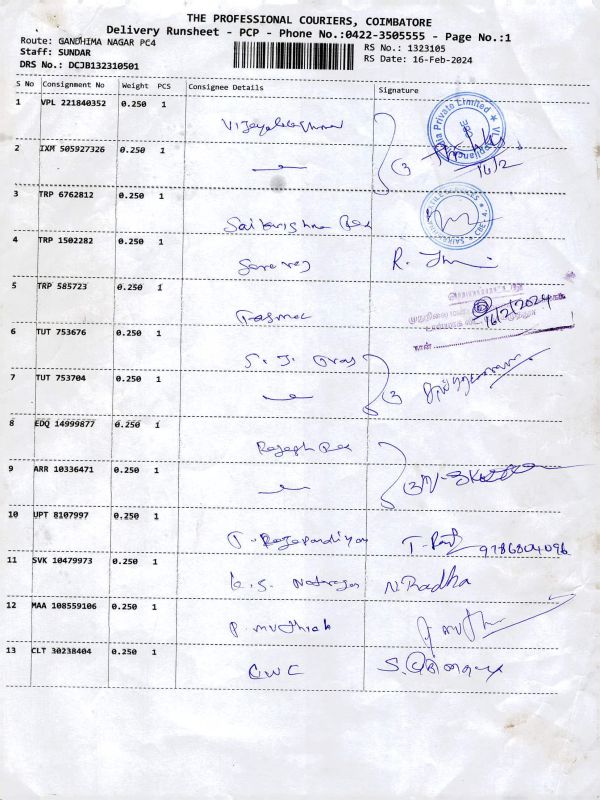 THE PROFESSIONAL COURIERS, COIMBATORE
Delivery Runsheet - PCP - Phone No.:0422-3505555 - Page No.:1
Route: GANDHIMA NAGAR PC4
RS No.: 1323105
Staff: SUNDAR
RS Date: 16-Feb-2024
DRS No.: DCJB132310501
S No Consignment No Weight PCS Consignee Details Signature
1 VPL 221840352 0.250 1
2 IXM 505927326 0.250 1
16/2
3 TRP 6762812 0.250 1
Saikrishna
4 TRP 1502282 0.250 1
R.
5 TRP 585723 0.250 1
16/2/2024
Tasmac
6 TUT 753676 0.250 1
S. J.
7 TUT 753704 0.250 1
8 EDQ 14999877 0.250 1
Rajesh
9 ARR 10336471 0.250 1
10 UPT 8107997 0.250 1
T. Rajapandiyan 9786804096
11 SVK 10479973 0.250 1
K.S. Natarajan N. Radha
12 MAA 108559106 0.250 1
P. Muthiah
13 CLT 30238404 0.250 1
CWC